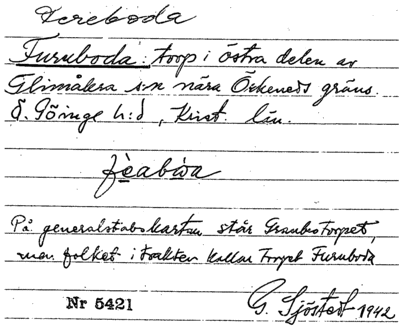 Fereboda
Furuboda: torp i östra delen av
Glimåkra s:n nära Örkeneds gräns.
Ö. Göinge h:d, Krist. län.
På generalstabskartan står Granbotorpet,
men folket i trakten kallar torpet Furuboda
Nr 5421
G. Sjöstedt 1942